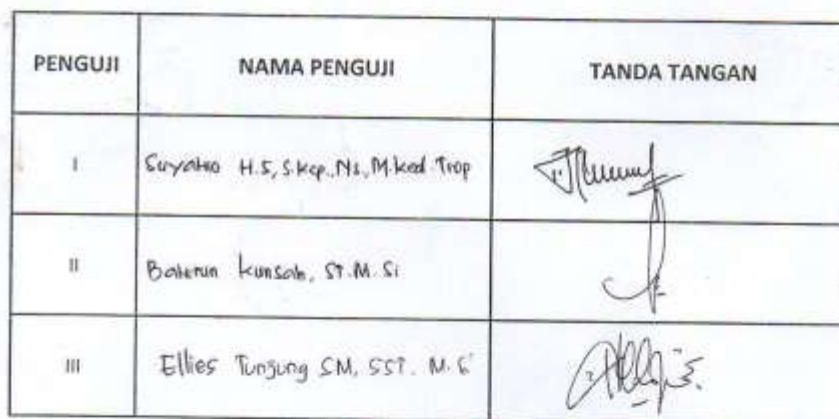 PENGUJI NAMA PENGUJI TANDA TANGAN
I Suyatno H.S, S.Kep.,Ns.,M.Ked.Trop
II Baterun Kunsah, ST.M.Si
III Ellies Tunjung SM, SST. M.Si